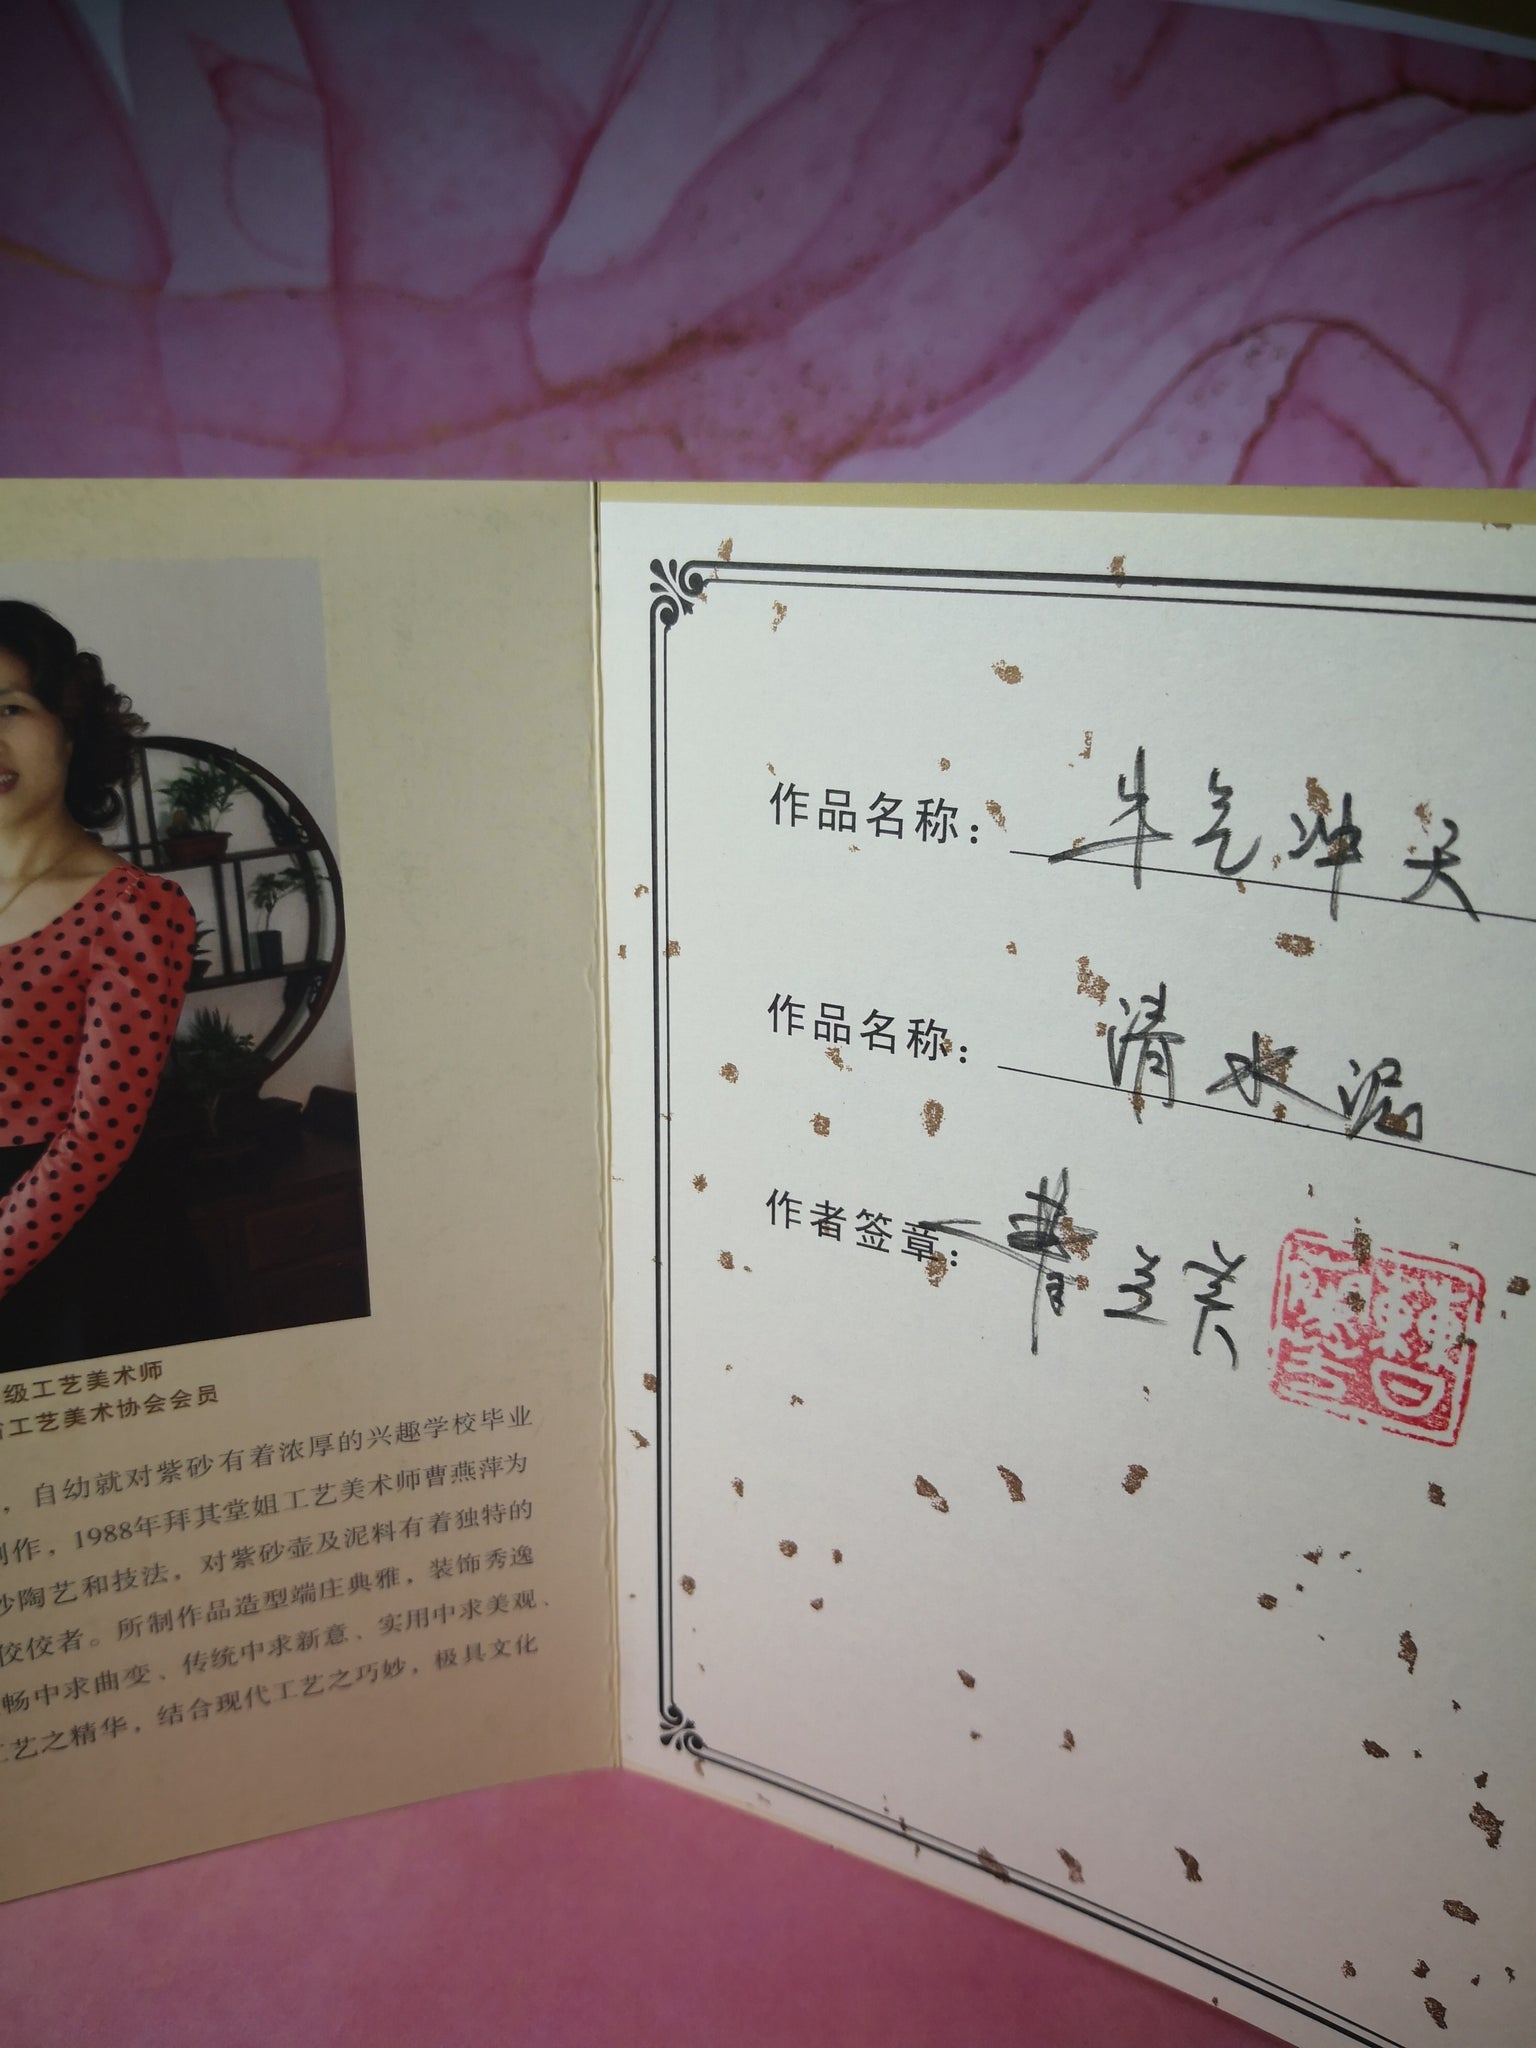 级工艺美术师
省工艺美术协会会员
，自幼就对紫砂有着浓厚的兴趣学校毕业
制作，1988年拜其堂姐工艺美术师曹燕萍为
砂陶艺和技法，对紫砂壶及泥料有着独特的
佼佼者。所制作品造型端庄典雅，装饰秀逸
畅中求曲变、传统中求新意、实用中求美观、
工艺之精华，结合现代工艺之巧妙，极具文化
作品名称：牛气冲天
作品名称：清水泥
作者签章：曹